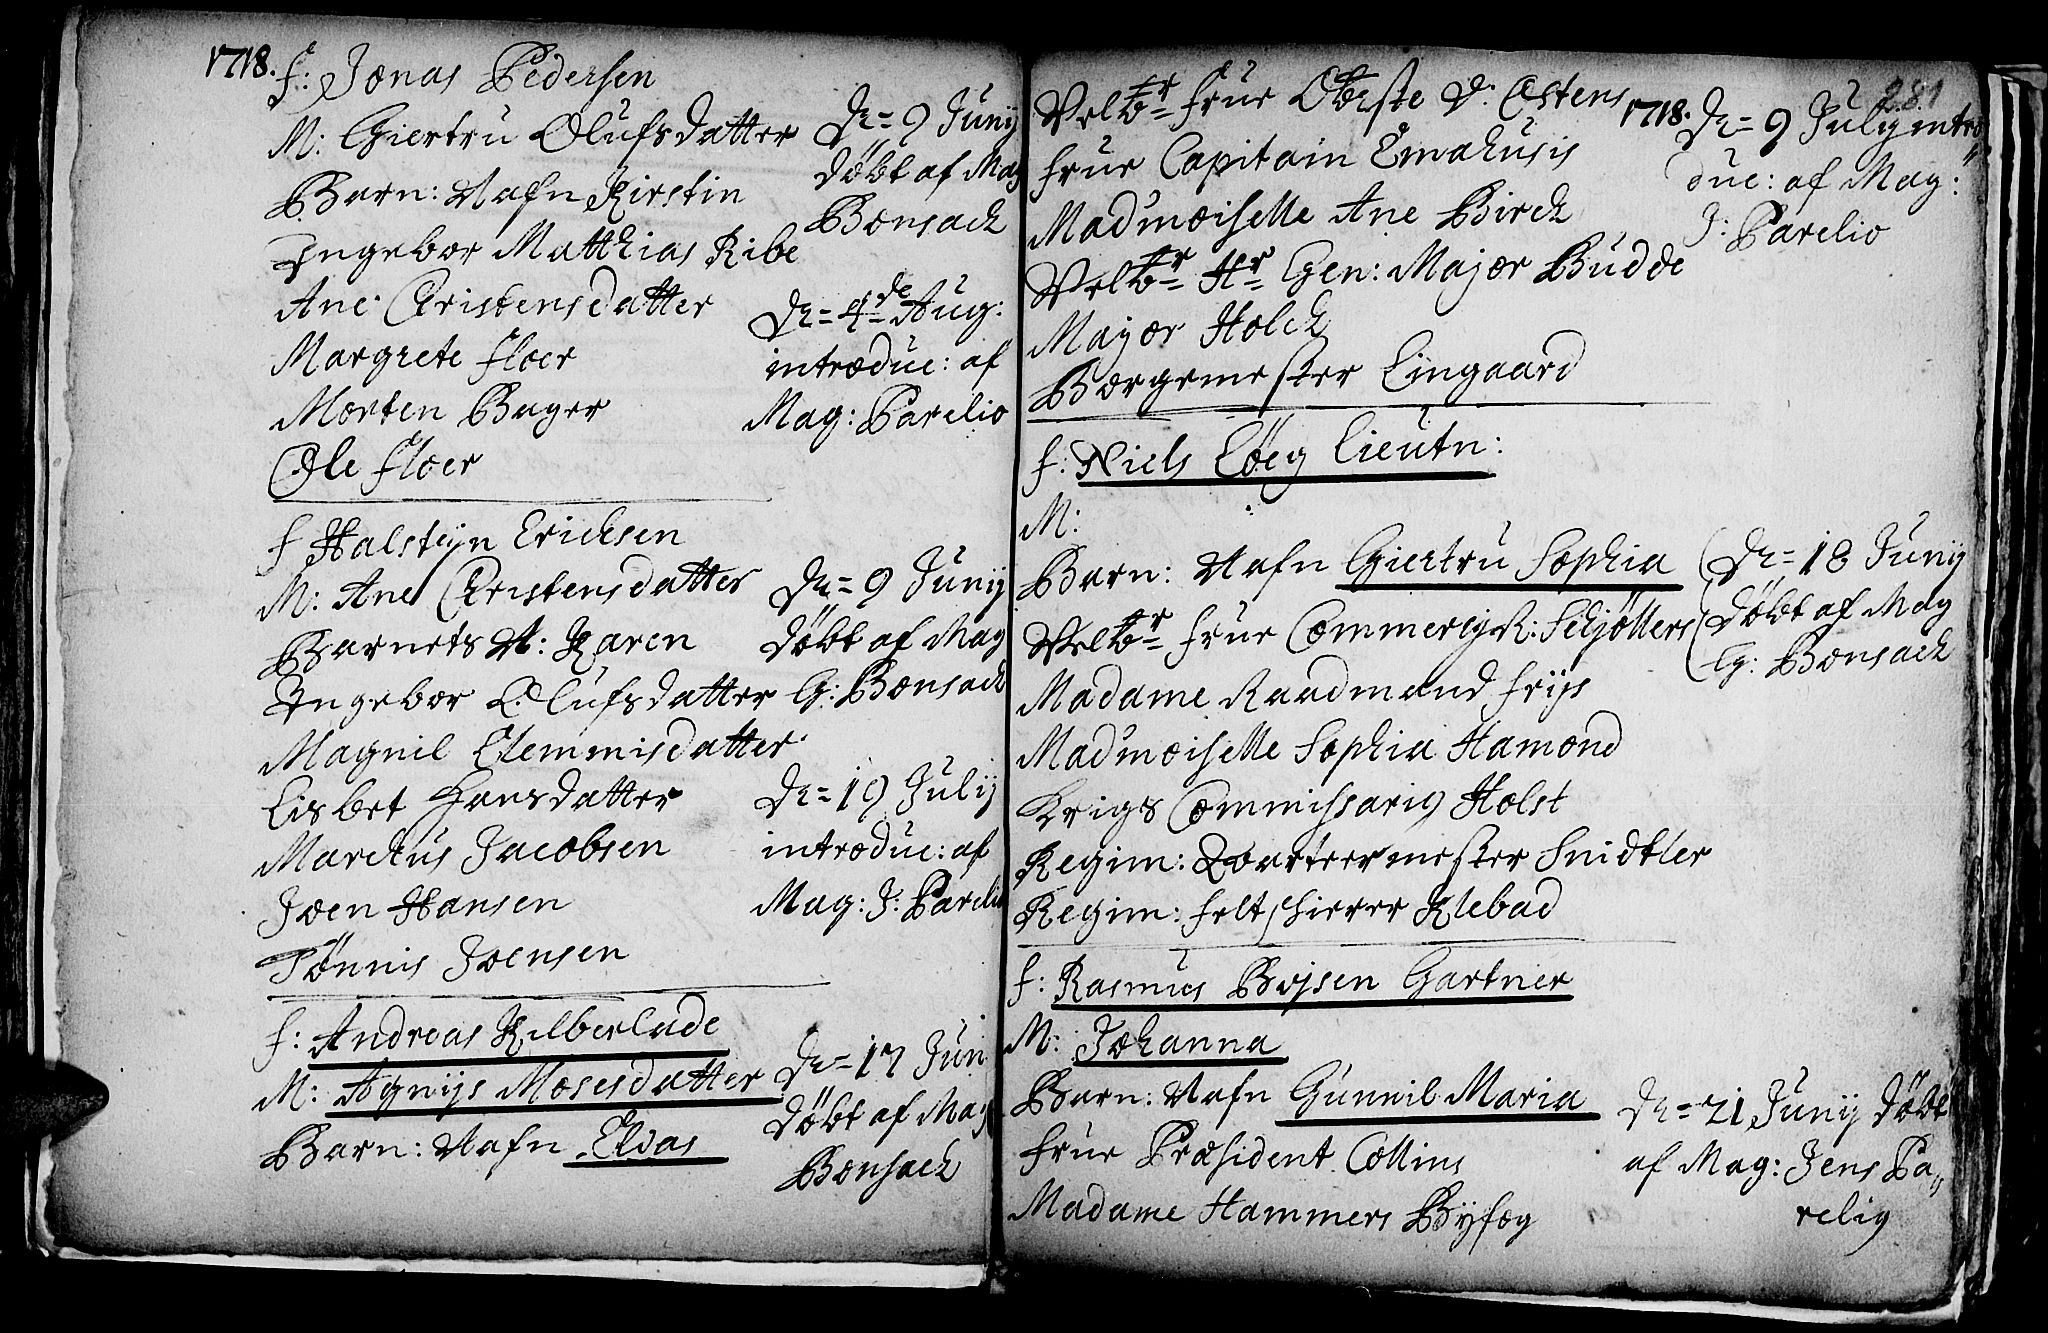 1718.
f: Jonas Pedersen
M: Giertru Olufsdatter
Barn: Nafn Kirstin
Ingebor Matthias Ribe
Ane Christensdatter
Margrete floer
Morten Bager
Ole floer
D. = 9 Junij
döbt af Mag
Bonsach
D. = 4de Aug:
introduc: af
Mag: Parelio
f Halsteijn Erichsen
M: Ane Christensdatter
Barnets N: Karen
Ingebor Olufsdatter
Magnil Clemmisdatter
Lisbet Hansdatter
Marckus Jacobsen
Joen Hansen
Tönnis Joensen
D. = 9 Junij
döbt af Mag
G: Bonsach
D. = 19 Julij
introduc: af
Mag: J: Parelio
f: Andreas Kilberlade
M: Agnijs Mosesdatter
Barn: Nafn Eldas
D. = 17 Jun
döbt af Mag
Bonsach
281
Velbr frue Oberste v: Ostens
frue Capitain Emahusis
Madmoiselle Ane Birch
Velbr Hr Gen: Major Budde
Major Holck
Borgemester Lingaard
1718.
D. = 9 Julij intro
duc: af Mag:
J: Parelio
f: Niels Löeg Lieutn:
M:
Barn: Nafn Giertru Sophia
Velbr frue Commercy R: Schjöllers
Madame Raadmand frijs
Madmoiselle Sophia Hamond
Krigs Commissarig Holst
Regim: Qvarteermester Snidtler
Regim: feltschierer Klebad
D. = 18 Junij
döbt af Mag
G: Bonsach
f: Rasmus Bojsen Gartner
M: Johanna
Barn: Nafn Gunnil Maria
frue Præsident Collins
Madame Hammers Byfog
D. = 21 Junij döbt
af Mag: Jens Pa
relig